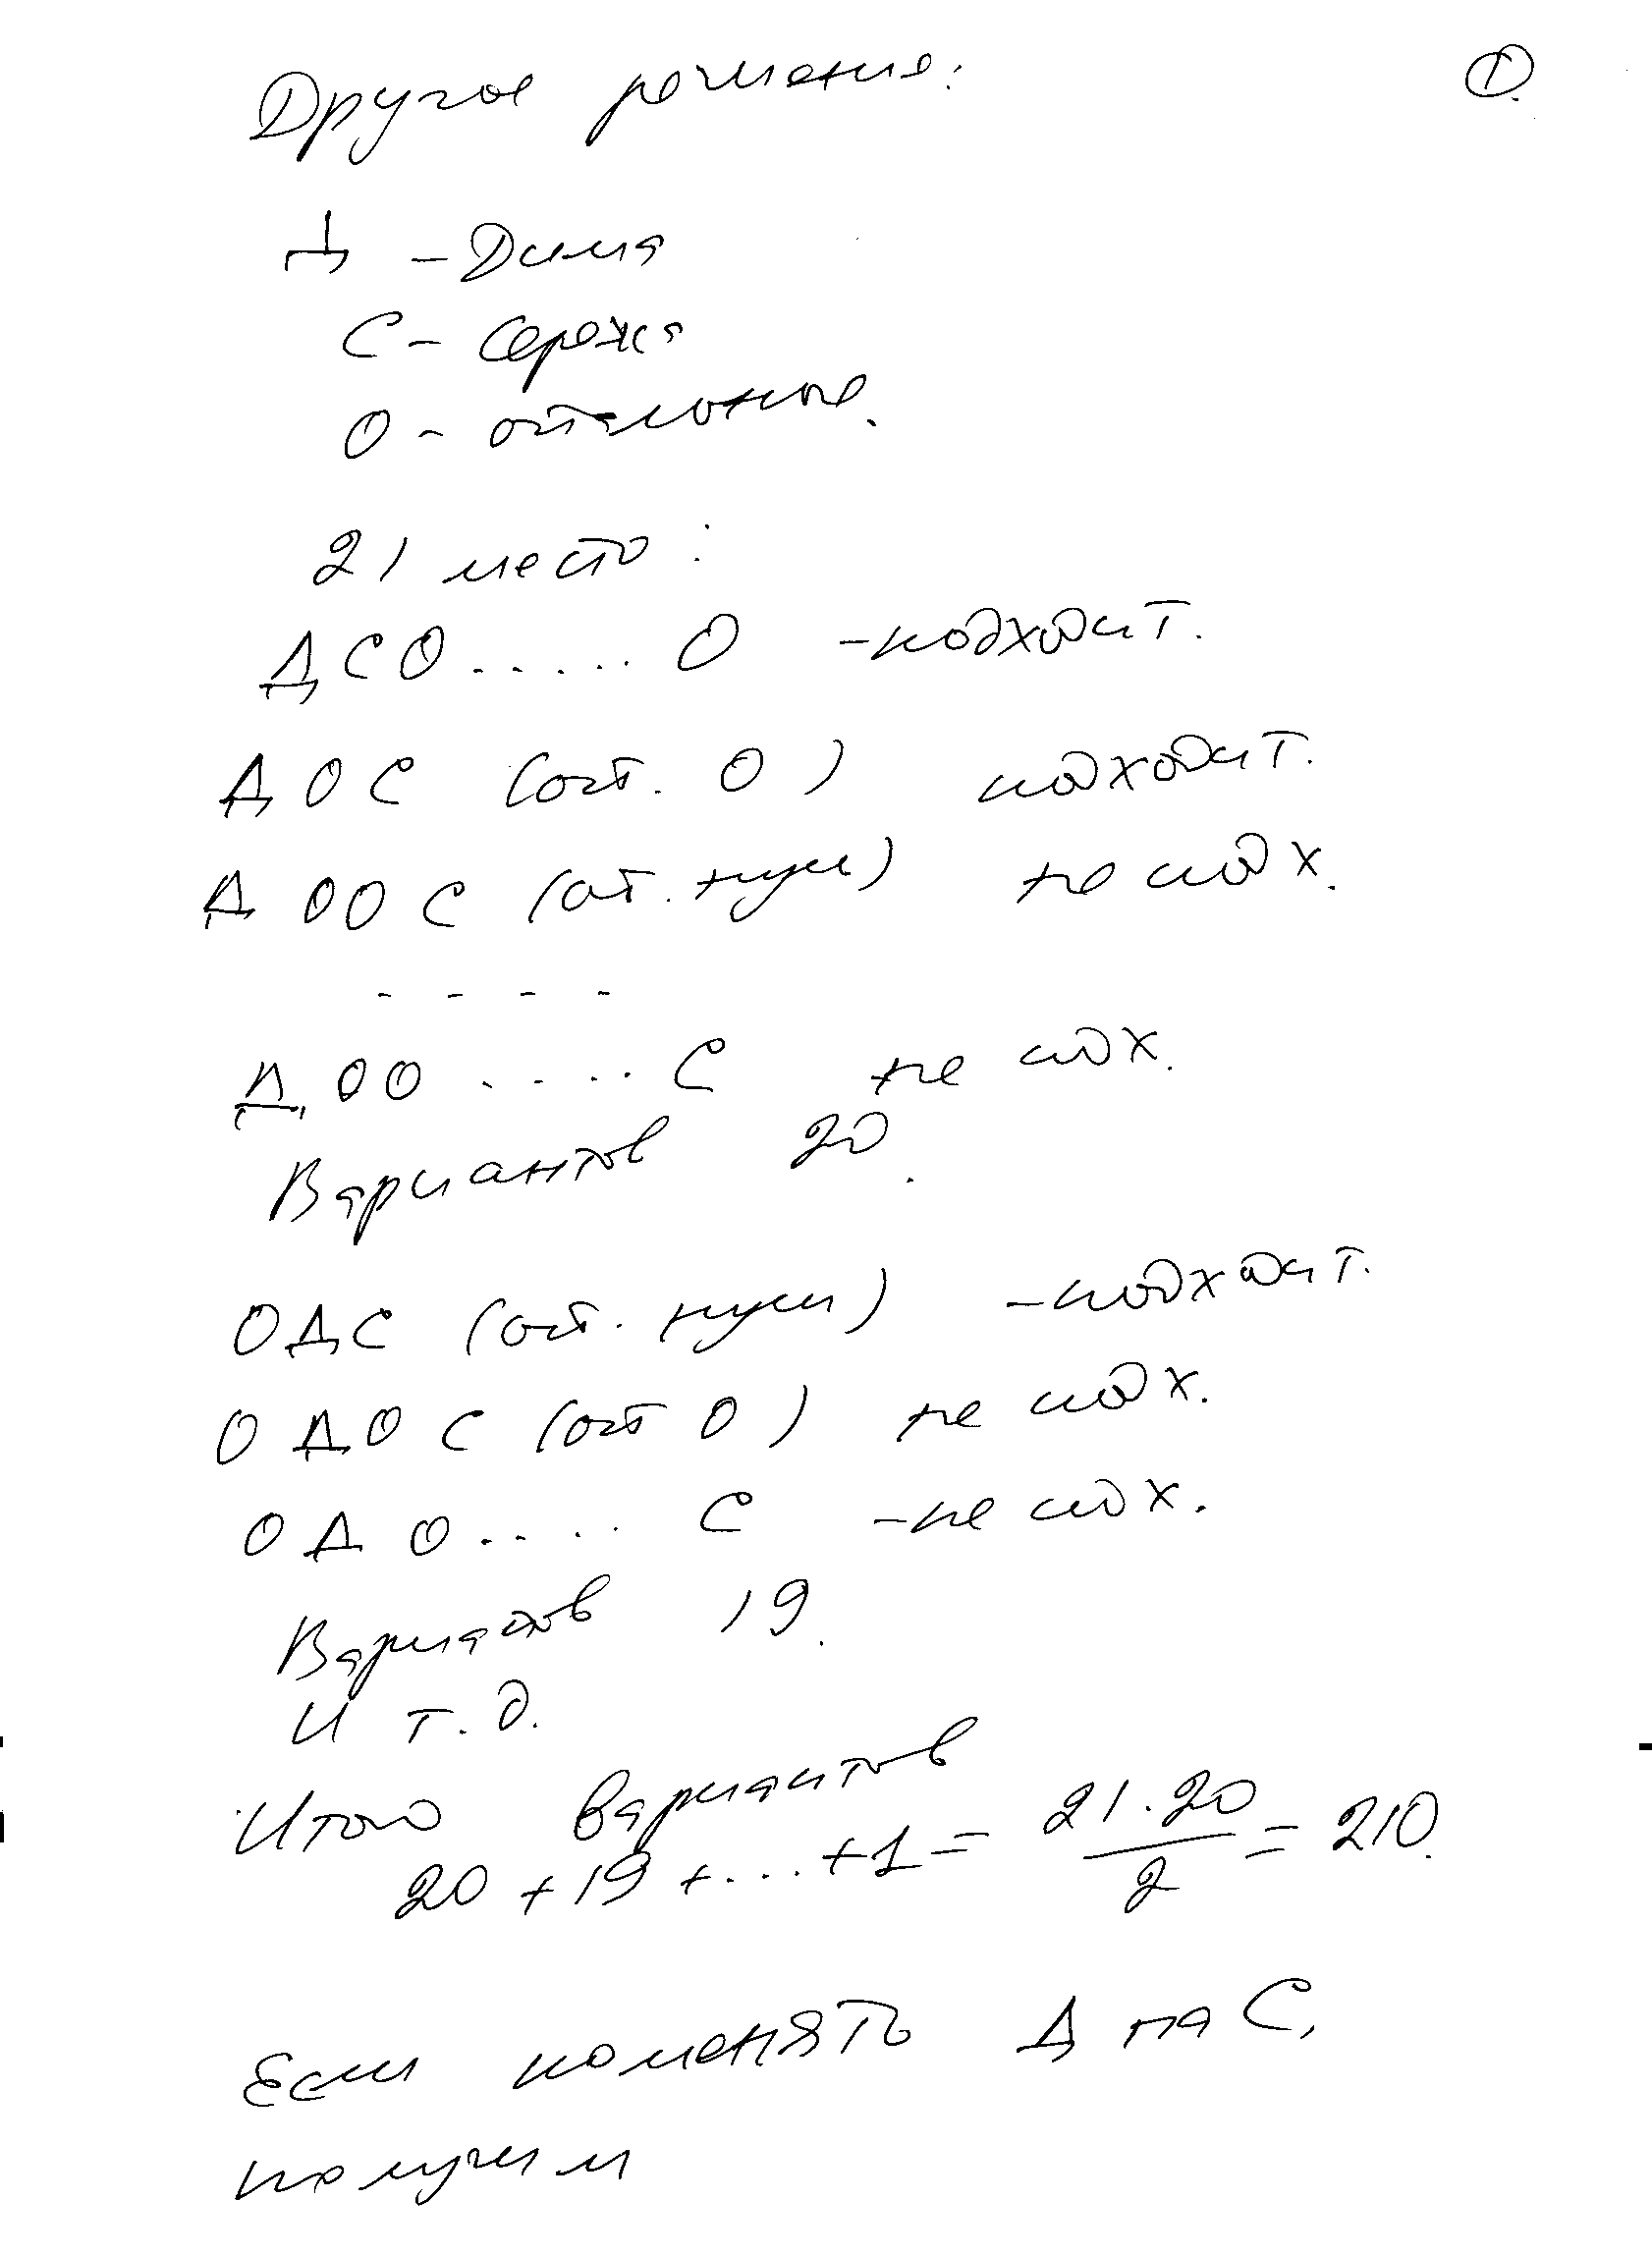 Другое решение:
1.
Д - Дима
С - Сережа
О - остальные.
21 место:
ДСО ..... О - подходит.
ДОС (ост. О) подходит.
ДООС (ост. нули) не подх.
- - - -
ДОО .... С не подх.
Вариантов 20.
ОДС (ост. нули) - подходит.
ОДОС (ост О) не подх.
ОДО .... С - не подх.
Вариантов 19.
И т.д.
Итого вариантов
20 + 19 + ... + 1 = \frac{21 \cdot 20}{2} = 210.
Если поменять Д на С,
получим